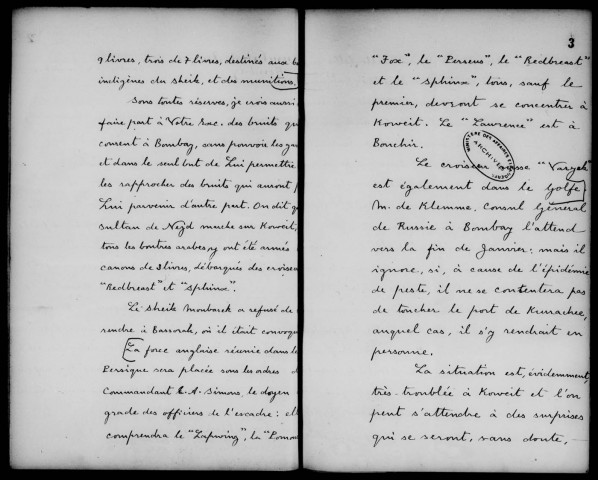 9 livres, trois de 7 livres, destinés aux b
indigènes du sheik, et des munitions.
Sous toutes réserves, je crois aussi
faire part à Votre Exc. des bruits qu
courent à Bombay, sans pouvoir les ga
et dans le seul but de Lui permettre
les rapprocher des bruits qui auront p
Lui parvenir d'autre part. On dit q
sultan de Nejd marche sur Koweit,
tous les boutres arabes, y ont été armés
canons de 3 livres, débarqués des croise
"Redbreast" et "Sphinx".
Le sheik Moubarek a refusé de
rendre à Bassorah, où il était convoqu
La force anglaise réunie dans le
Persique sera placée sous les ordres d
Commandant E. A. Simons, le doyen
grade des officiers de l'escadre: el
comprendra le "Lapwing", la "Pomon
3
"Fox", le "Perseus", le "Redbreast"
et le "Sphinx", tous, sauf le
premier, devront se concentrer à
Koweit. Le "Lawrence" est à
Bouchir.
MINISTÈRE DES AFFAIRES ÉTRANGÈRES
ARCHIVES
Le croiseur russe "Varyak"
est également dans le Golfe.
M. de Klemme, Consul Général
de Russie à Bombay l'attend
vers la fin de Janvier; mais il
ignore, si, à cause de l'épidémie
de peste, il ne se contentera pas
de toucher le port de Kurachee,
auquel cas, il s'y rendrait en
personne.
La situation est, évidemment,
très-troublée à Koweit et l'on
peut s'attendre à des surprises
qui se seront, sans doute, -